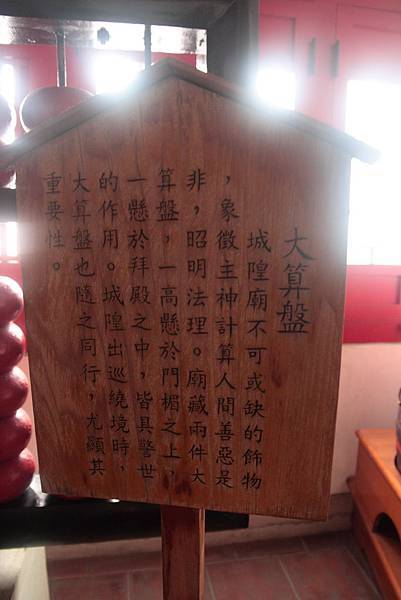 大算盤
城隍廟不可或缺的飾物
，象徵主神計算人間善惡是
非，昭明法理。廟藏兩件大
算盤，一高懸於門楣之上，
一懸於拜殿之中，皆具警世
的作用。城隍出巡繞境時，
大算盤也隨之同行，尤顯其
重要性。